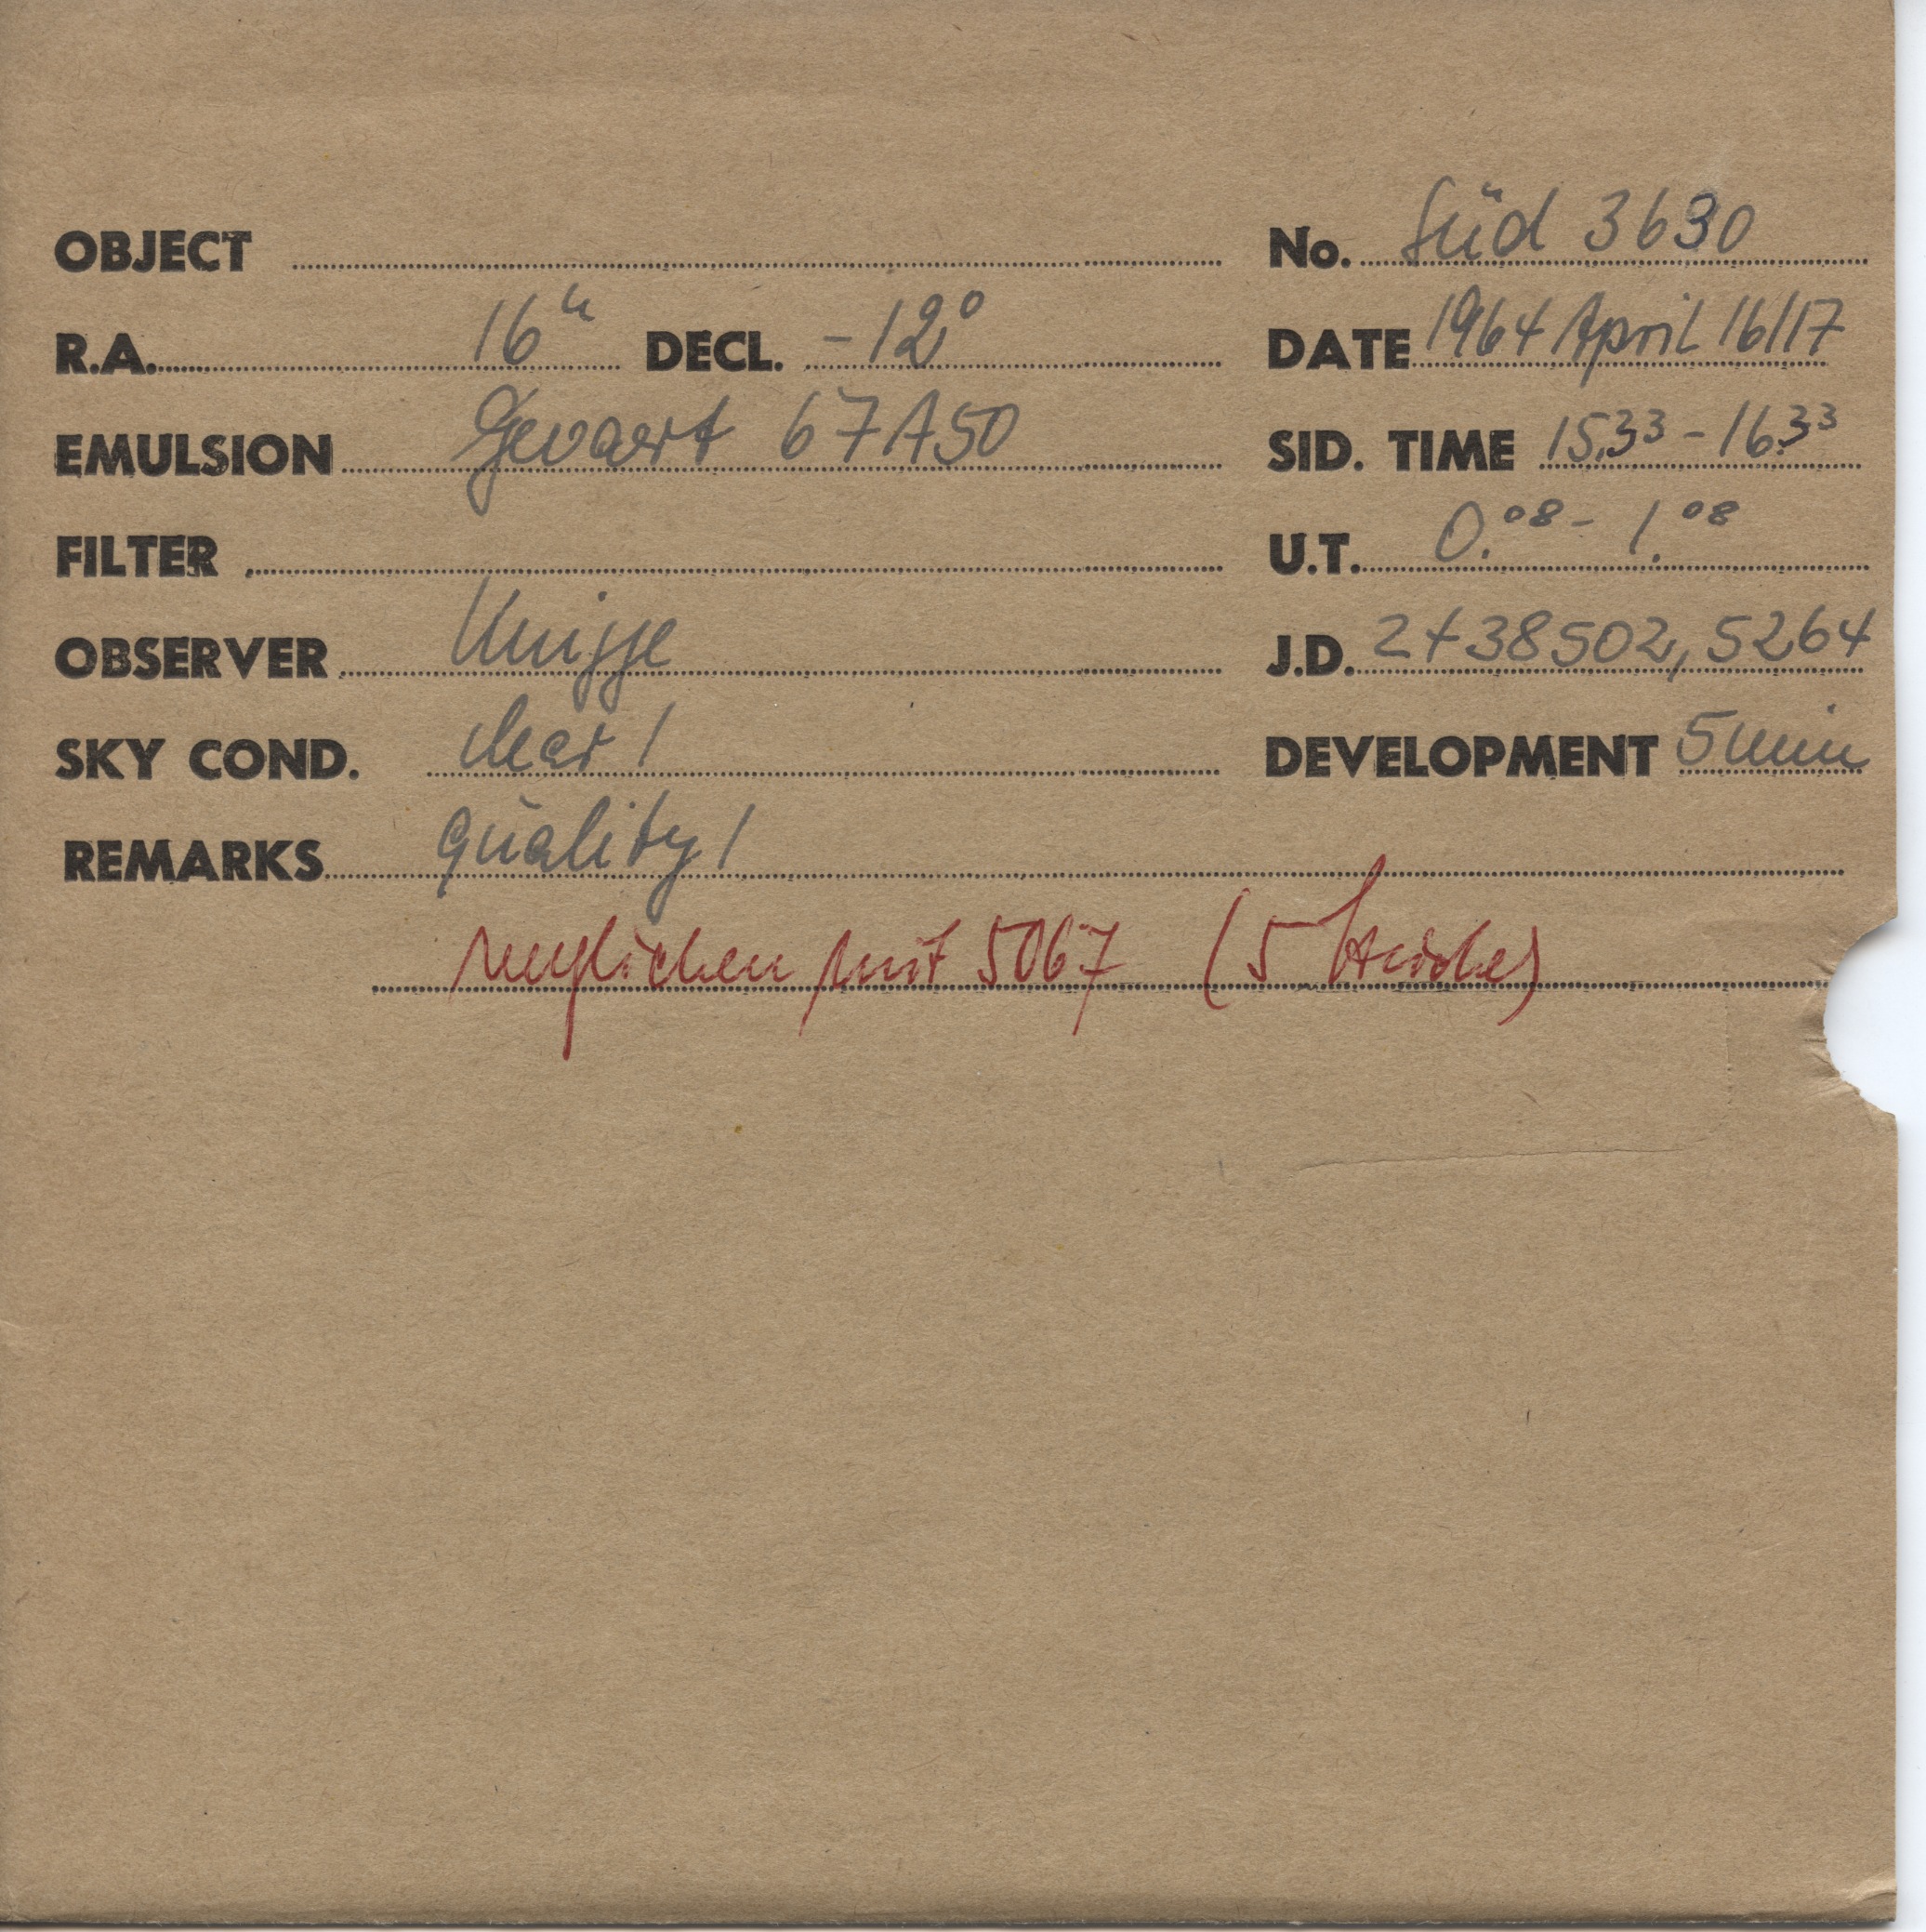 OBJECT No. Süd 3630
R.A. 16h DECL. -12° DATE 1964 April 16/17
EMULSION Gevaert 67A50 SID. TIME 15.33 - 16.33
FILTER U.T. 0.08 - 1.08
OBSERVER Knigge J.D. 2438502,5264
SKY COND. clear 1 DEVELOPMENT 5 min
REMARKS quality 1
verglichen mit 5067 (5 Striche)